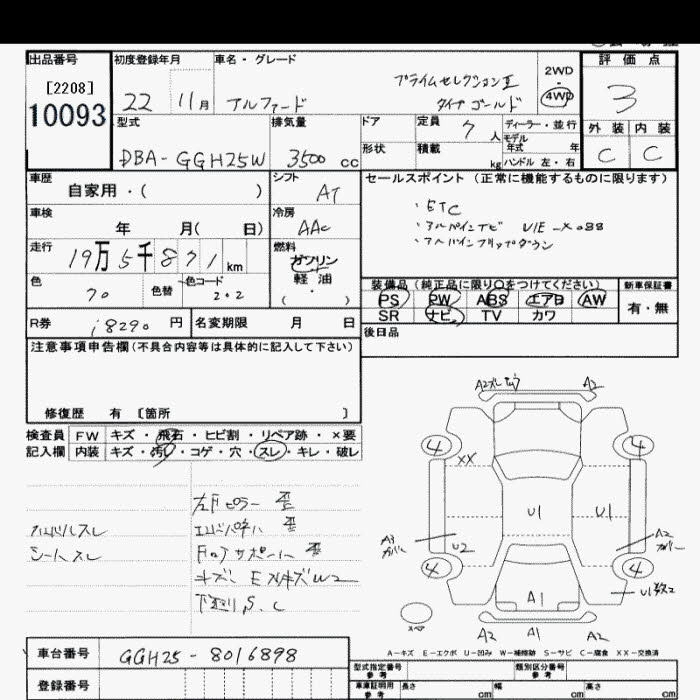 出品番号
[2208]
10093
初度登録年月
22 11月
車名・グレード
アルファード
プライムセレクションII
タイプゴールド
2WD
・
4WD
評価点
3
外装 内装
C C
型式
DBA-GGH25W
排気量
3500 cc
ドア
形状
定員 7 人
積載 kg
ディーラー・並行
モデル
年式 年
ハンドル 左・右
車歴
自家用・( )
シフト
AT
車検
年 月( 日)
冷房
AAC
走行
19万5千871km
燃料
ガソリン
軽油
( ・ )
色
70
色替
色コード
202
セールスポイント(正常に機能するものに限ります)
・ETC
・アルパインナビ VIE-X088
・アルパインフリップダウン
装備品(純正品に限り○をつけてください)
PS PW ABS エアB AW
SR ナビ TV カワ
新車保証書
有・無
R券
18290 円
名変期限 月 日
後日品
注意事項申告欄(不具合内容等は具体的に記入して下さい)
修復歴 有 〔箇所 〕
検査員
記入欄
FW キズ・飛石・ヒビ割・リペア跡・×要
内装 キズ・汚れ・コゲ・穴・スレ・キレ・破レ
ハンドルスレ
シートスレ
左Fピラー 歪
エンドパネル 歪
キズ、EXキズW2
下廻りS、C
A2 A2
4 4
XX
U1 U1
A3
カバー
U2
A2
カバー
4 4
A1
U1数ヶ
スペア
A2 A1 A2
A-キズ E-エクボ U-凹み W-補修跡 S-サビ C-腐食 XX-交換済
車台番号
GGH25-8016898
登録番号
型式指定番号
参考
類別区分番号
参考
車庫証明用
参考
長さ cm
幅 cm
高さ cm